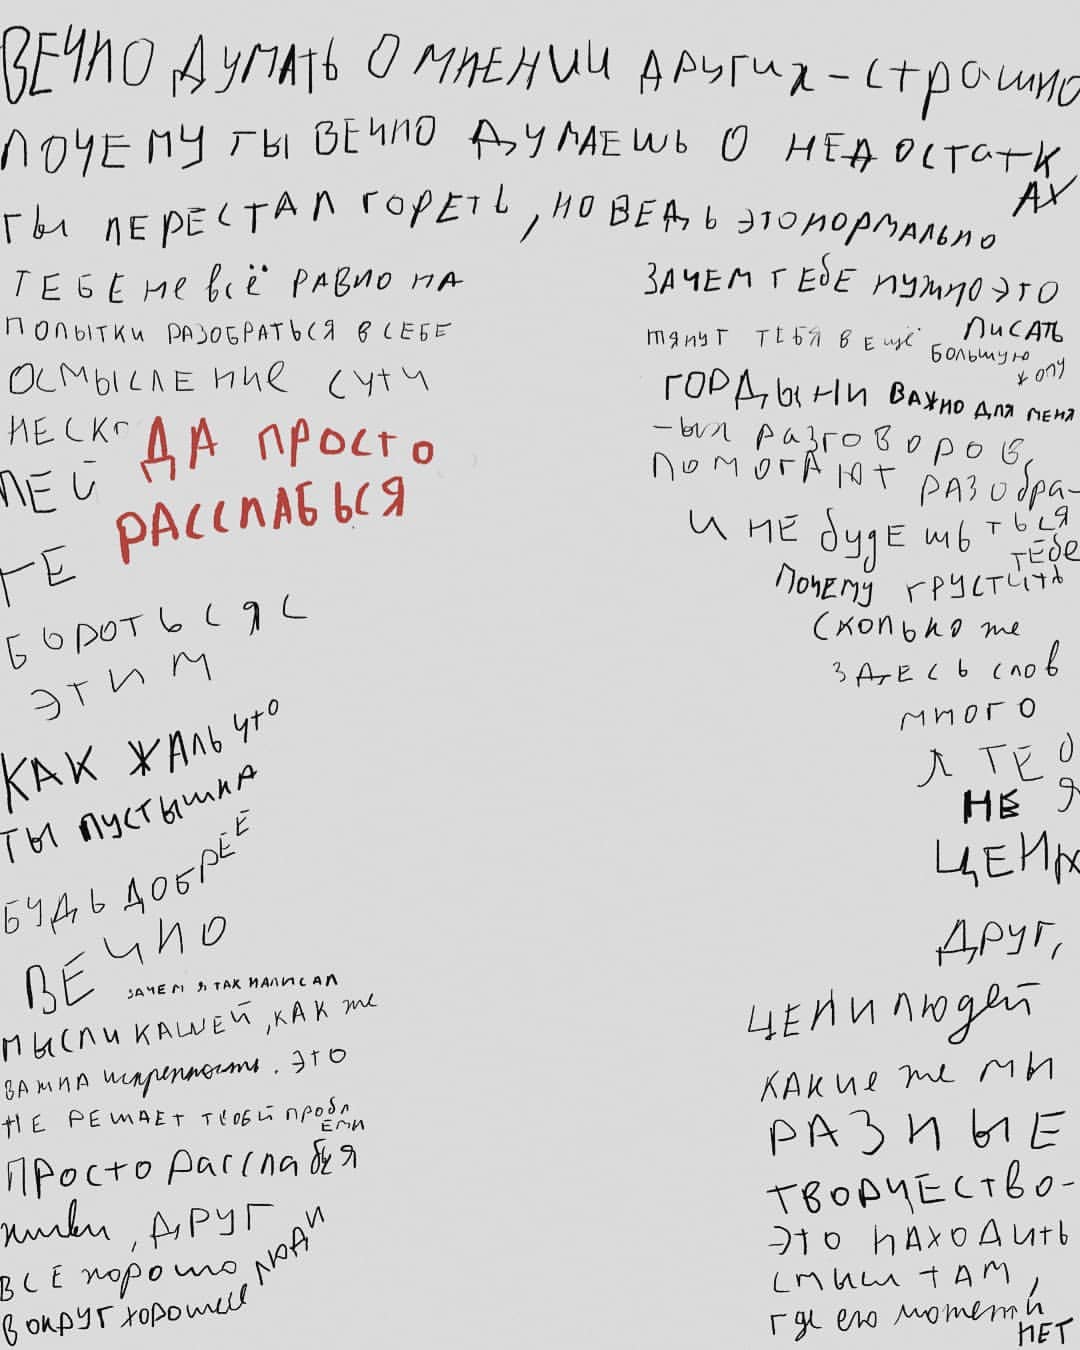 ВЕЧНО ДУМАТЬ О МНЕНИИ ДРУГИХ - СТРАШНО
ПОЧЕМУ ТЫ ВЕЧНО ДУМАЕШЬ О НЕДОСТАТК
АХ
ТЫ ПЕРЕСТАЛ ГОРЕТЬ, НО ВЕДЬ ЭТО НОРМАЛЬНО
ТЕБЕ не всё РАВНО НА
ПОПЫТКИ РАЗОБРАТЬСЯ В СЕБЕ
ОСМЫСЛЕНИЕ СУТИ
НЕСК
ПЕЙ
ДА ПРОСТО
РАССЛАБЬСЯ
ТЕ
БОРОТЬСЯ С
ЭТИМ
КАК ЖАЛЬ ЧТО
ТЫ ПУСТЫШКА
БУДЬ ДОБРЕЕ
ВЕЧНО
ЗАЧЕМ Я ТАК НАПИСАЛ
МЫСЛИ КАШЕЙ, КАК же
ВАЖНА искренность. ЭТО
НЕ РЕШАЕТ ТВОЕЙ ПРОБЛ
ЕМЫ
ПРОСТО расслабься
живи, ДРУГ
ВСЕ хорошо
ВОКРУГ хорошие ЛЮДИ
ЗАЧЕМ ТЕбЕ НУЖНО ЭТО
ПИСАТЬ
тянут ТЕБЯ В Ещё БОЛЬШУЮ
жопу
ГОРДЫНИ ВАЖНО ДЛЯ МЕНЯ
-ЫЯ РАЗГОВОРОВ
ПОМОГАЮТ РАЗОбРА-
ТЬСЯ
И НЕ будЕшЬ
ТЕбе
ПОЧЕМУ ГРУСТИТЬ
СКОЛЬКО же
ЗДЕСЬ СЛОВ
МНОГО
Л ТЕ О
НЕ Я
ЦЕНЮ
ДРУГ,
ЦЕНИ людей
КАКИЕ же МЫ
РАЗНЫЕ
ТВОРЧЕСТВО-
ЭТО НАХОДИТЬ
СМЫСЛ ТАМ,
где его может И
НЕТ